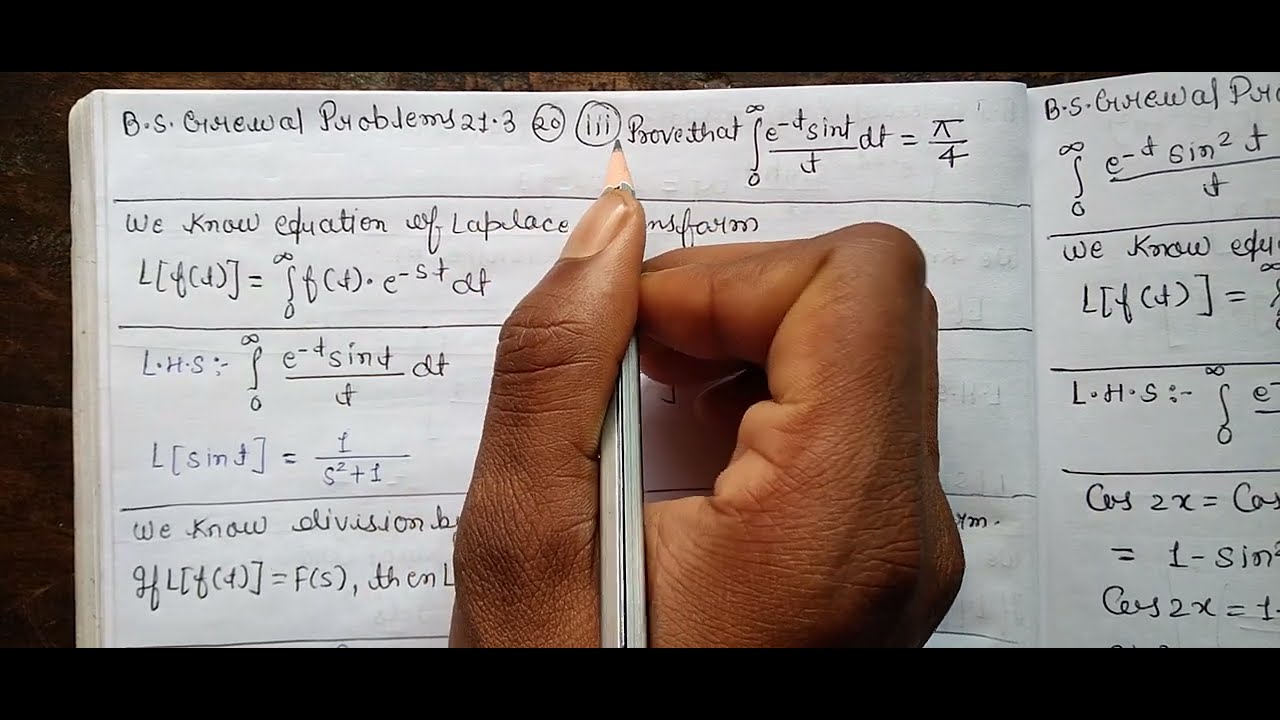 B.S. Grewal Problems 21.3 20 iii Prove that ∫₀^∞ e^-t sint/t dt = π/4
We know equation of Laplace
L[f(t)] = ∫₀^∞ f(t)·e^-st dt
L.H.S:- ∫₀^∞ e^-t sint/t dt
L[sint] = 1/s²+1
We know division
If L[f(t)] = F(s), then L
B.S. Grewal
∫₀^∞ e^-t sin² t/t
We know
L[f(t)] =
L.H.S:- ∫₀^∞
Cos 2x =
= 1 - sin²
Cos 2x = 1-